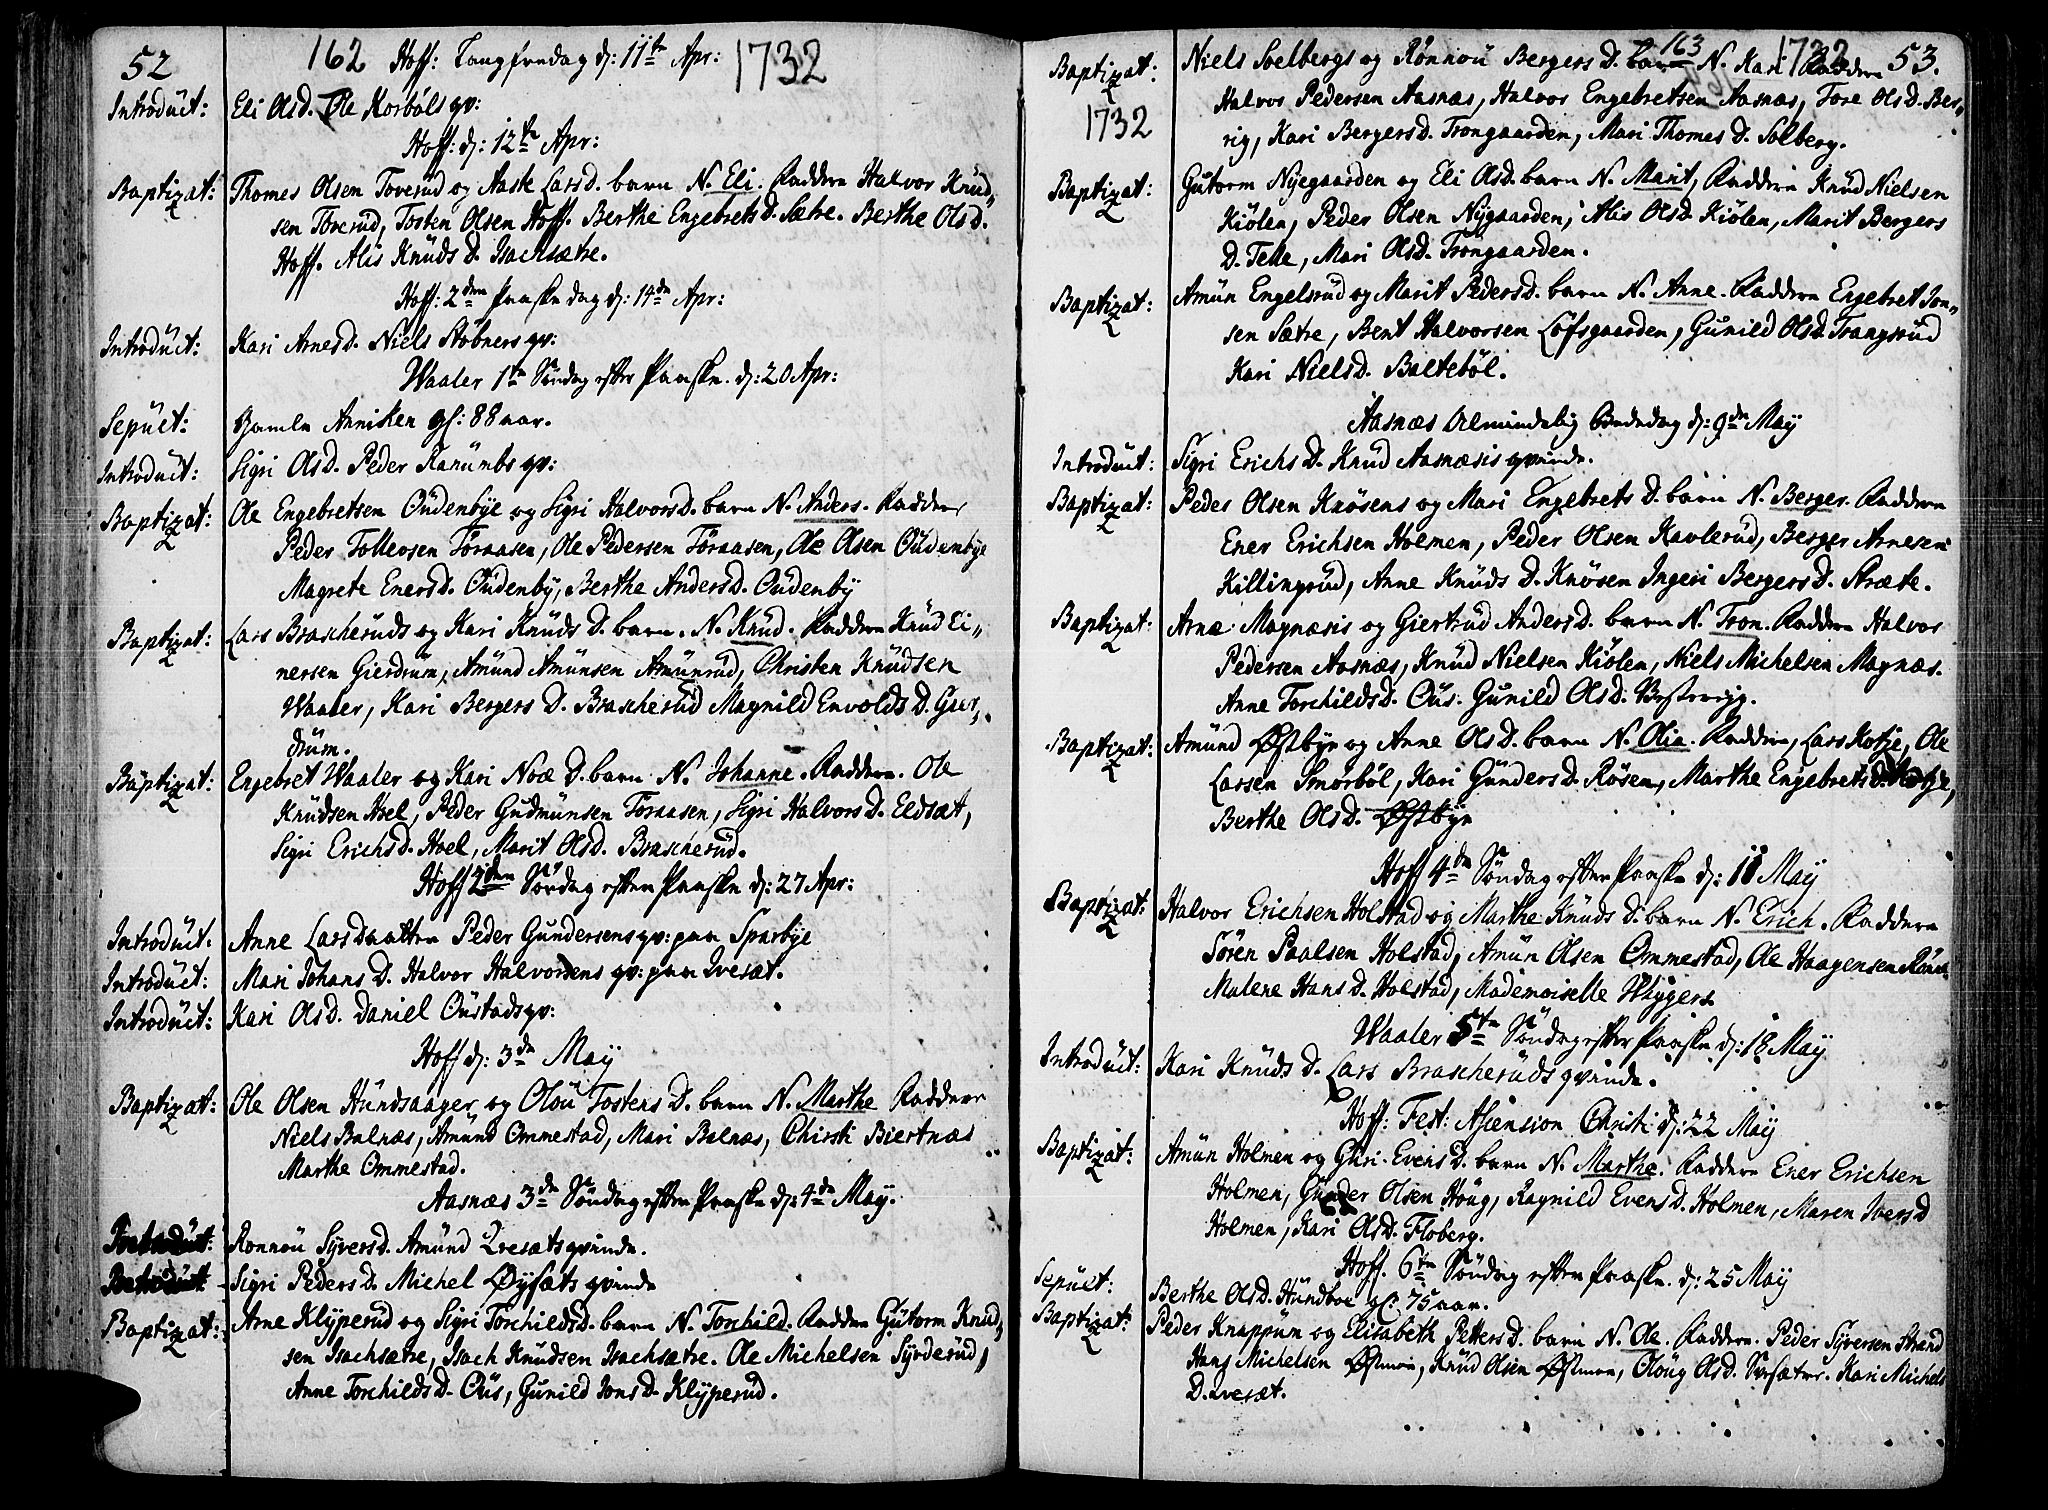 52 162 Hoff: Langfredag d: 11te Apr: 1732
Introduct: Eli Olsd. Ole Korbøls qv:
Hoff: d: 12te Apr:
Baptizat: Thomas Olsen Toverud og Aaste Larsd. barn N. Eli. Faddere Halvor Knud-
sen Toverud, Tosten Olsen Hoff. Berthe Engebretsd. Sætre. Berthe Olsd.
Hoff. Alis Knudsd. Isachsætre.
Hoff: 2den Paaske dag d: 14de Apr:
Introduct: Kari Arnesd. Niels Stobners qv:
Waaler 1te Søndag efter Paaske. d: 20 Apr:
Sepult: Gamle Anniken gl: 88 aar.
Introduct: Sigri Olsd. Peder Ranumbs qv:
Baptizat: Ole Engebretsen Oudenbye og Sigri Halvorsd. barn N. Anders. Faddere
Peder Tollevsen Toraasen, Ole Pedersen Toraasen, Ole Olsen Oudenbye
Magrete Enersd. Oudenby, Berthe Andersd. Oudenby
Baptizat: Lars Brascheruds og Kari Knuds D. barn. N. Knud. Faddere Knud Ei-
nersen Gierdrum, Amund Amunsen Amunrud, Christen Knudsen
Waaler, Kari Bergers D. Brascherud Magnild Envolds D. Gier-
drum.
Baptizat: Engebret Waaler og Kari Noæ D. barn N. Johanne. Faddere. Ole
Knudsen Hoel, Peder Gudmunsen Toraasen, Sigri Halvors D. Eldsæt,
Sigri Erichsd. Hoel, Marit Olsd. Brascherud.
Hoff 2den Søndag efter Paaske d: 27 Apr:
Introduct: Anne Larsdaatter Peder Gundersens qv: paa Sparbye
Introduct: Mari Johans D. Halvor Halvorsens qv: paa Iversæt.
Introduct: Kari Olsd. Daniel Oustads qv:
Hoff d: 3de May
Baptizat: Ole Olsen Hundsaager og Olou Tostens D. barn N. Marthe Faddere
Niels Balnæs, Amund Ommestad, Mari Balnæs, Chirsti Biertnæs
Marthe Ommestad.
Aasnæs 3de Søndag efter Paaske d: 4de May.
Introduct: Ronnou Syversd. Amund Qvesæts qvinde.
Introduct Sigri Peders D. Michel Øysæts qvinde
Baptizat: Arne Klyperud og Sigri Torchildsd. barn N. Torchild. Faddere Gutorm Knud-
sen Isachsætre, Isach Knudsen Isachsætre. Ole Michelsen Syrderud,
Anne Torchilds D. Ous, Gunild Jons D. Klyperud.
163 1732 53.
Baptizat: Niels Soelbergs og Rønnou Bergers D. barn N. Kari Faddere
1732 Halvor Pedersen Aasnæs, Halvor Engebretsen Aasnæs, Tore Olsd. Ber-
rig, Kari Bergersd. Trongaarden, Mari Thomes D. Solberg.
Baptizat: Gutorm Nyegaarden og Eli Olsd. barn N. Marit, Faddere Knud Nielsen
Kiølen, Peder Olsen Nygaarden, Alis Olsd. Kiølen, Marit Bergers
D. Telle, Mari Olsd. Trongaarden.
Baptizat: Amun Engelsrud og Marit Pedersd. barn N. Anne. Faddere Engebret Jon-
sen Sætre, Bent Halvorsen Løfsgaarden, Gunild Olsd. Trangsrud
Kari Nielsd. Baltebøl.
Aasnæs Almindelig Bededag d: 9de May
Introduct: Sigri Erichs D. Knud Aasnæsis qvinde.
Baptizat: Peder Olsen Knøsens og Mari Engebrets D. barn N. Berger. Faddere
Ener Erichsen Holmen, Peder Olsen Kavlerud, Berger Arnesen
Killingrud, Anne Knuds D. Knøsen Ingeri Bergers D. Stræte.
Baptizat: Arne Magnæsis og Giertrud Anders D. barn N. Tron. Faddere Halvor
Pedersen Aasnæs, Knud Nielsen Kiølen, Niels Michelsen Magnæs.
Anne Torchilds D. Ous. Gunild Olsd.
Baptizat: Amund Østbye og Anne Olsd. barn N. Olia. Faddere, Lars Kotje, Ole
Larsen Smorbøl, Kari Gunders D. Røsen, Marthe Engebretsd. Kotje,
Berthe Olsd. Østbye
Hoff 4de Søndag efter Paaske d: 11 May
Baptizat: Halvor Erichsen Holstad og Marthe Knuds D. barn N. Erich. Faddere
Søren Paalsen Holstad, Amun Olsen Ommestad, Ole Haagensen
Malene Hans D. Holstad, Mademoiselle
Waaler 5te Søndag efter Paaske d: 18 May
Introduct: Kari Knuds D. Lars Brascheruds qvinde.
Hoff: Fest: Ascension Christi d: 22 May
Baptizat: Amun Holmen og Guri Evens D. barn N. Marthe. Faddere Ener Erichsen
Holmen, Gunder Olsen Houg, Ragnild Evens D. Holmen, Maren Ivers D
Holmen, Kari Olsd. Floberg.
Hoff. 6te Søndag efter Paaske. d: 25 May
Sepult: Berthe Olsd. Hundboe gl: 75 aar.
Baptizat: Peder Knappun og Elisabeth Petters D. barn N. Ole. Faddere. Peder Syversen Strand
Hans Michelsen Østmoe, Knud Olsen Østmoe, Oloug Olsd. Sorsæter. Kari Michels
D. Qvesæt.